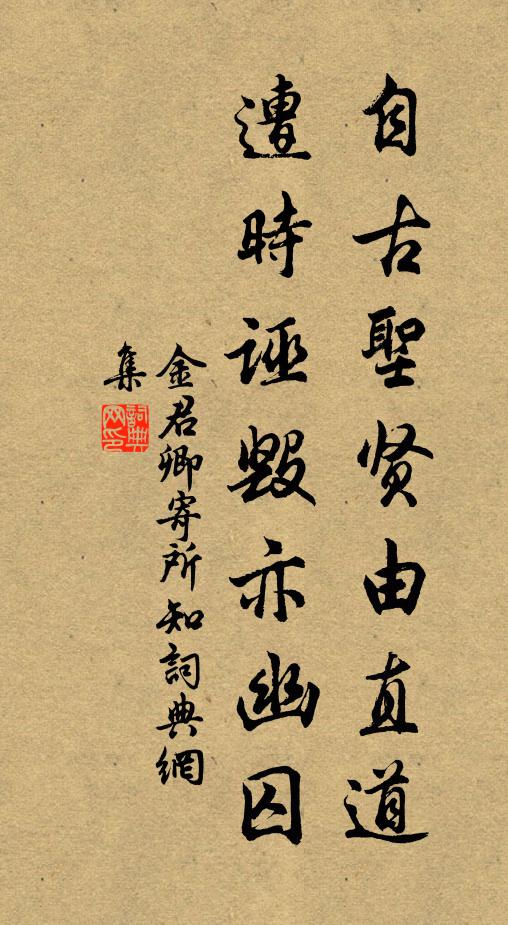 自古聖贤由直道
遭時誣毀亦幽囚
金君卿寄所知詞典網
集
詞典网印